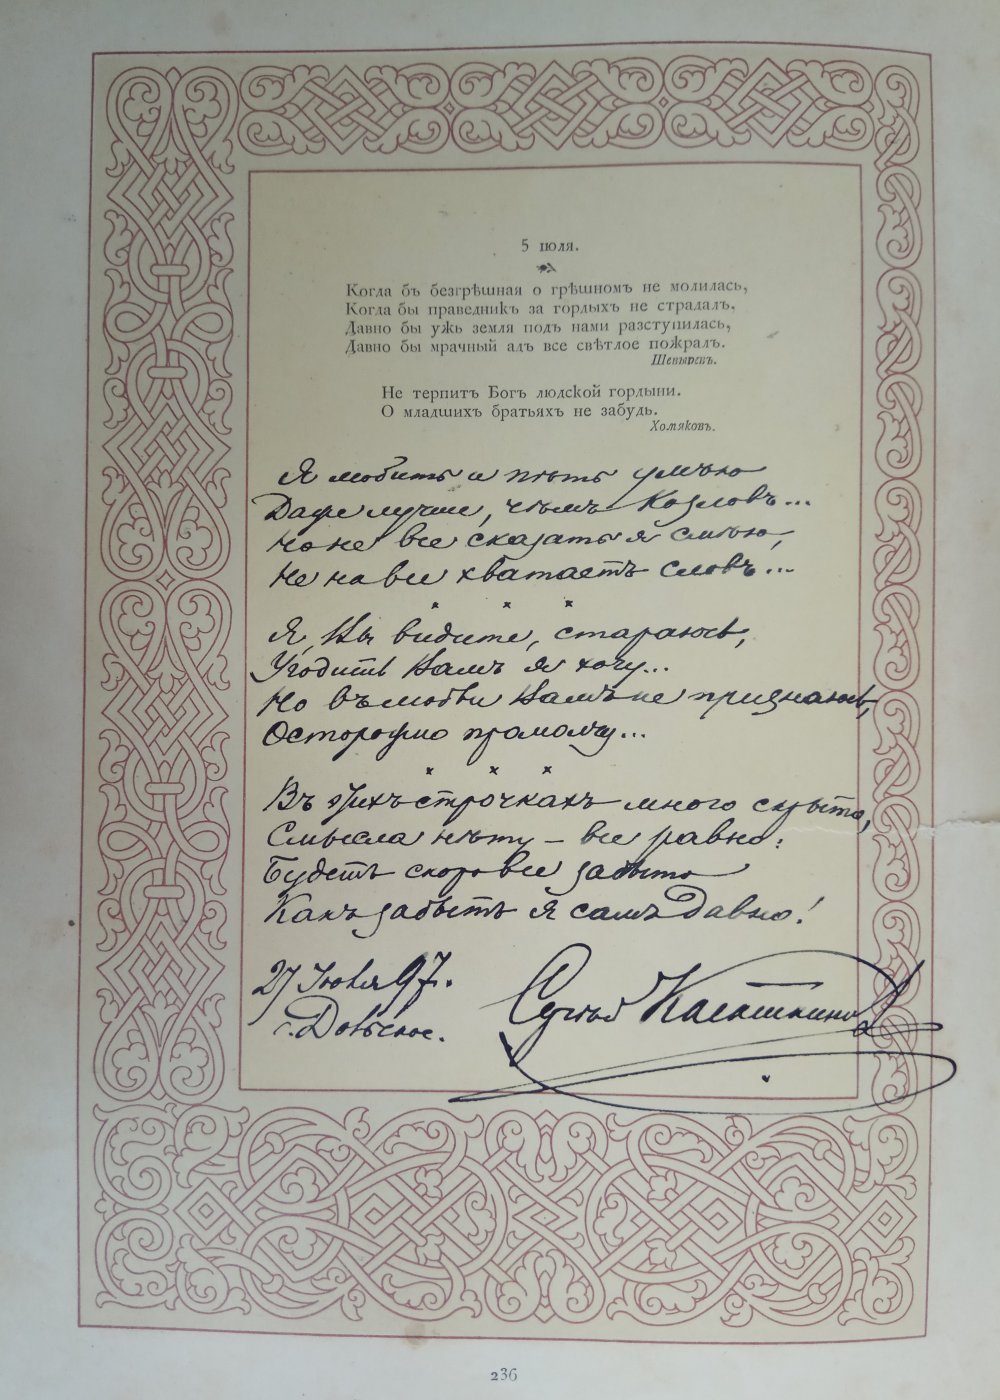 5 іюля.
Когда бъ безгрѣшная о грѣшномъ не молилась,
Когда бы праведникъ за гордыхъ не страдалъ,
Давно бы ужь земля подъ нами разступилась,
Давно бы мрачный адъ все свѣтлое пожралъ.
Шевыревъ.
Не терпитъ Богъ людской гордыни.
О младшихъ братьяхъ не забудь.
Хомяковъ.
Я любить и пѣть умѣю
Даже лучше, чѣмъ Козловъ...
Но не все сказать я смѣю,
Не на все хватаетъ словъ...
х х х
Я, Вы видите, стараюсь,
Угодить Вамъ я хочу...
Но въ любви Вамъ не признаюсь,
Осторожно промолчу...
х х х
Въ этихъ строчкахъ много скрыто,
Смысла нѣту – все равно:
Будетъ скоро все забыто
Какъ забытъ я самъ давно!
27 Іюня 97.
с.
Сергѣй
236